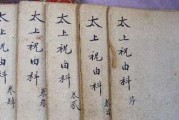 太上祝由科 序
太上祝由科 卷
太上祝由科 卷貳
太上祝由科 卷
太上祝由科 卷肆